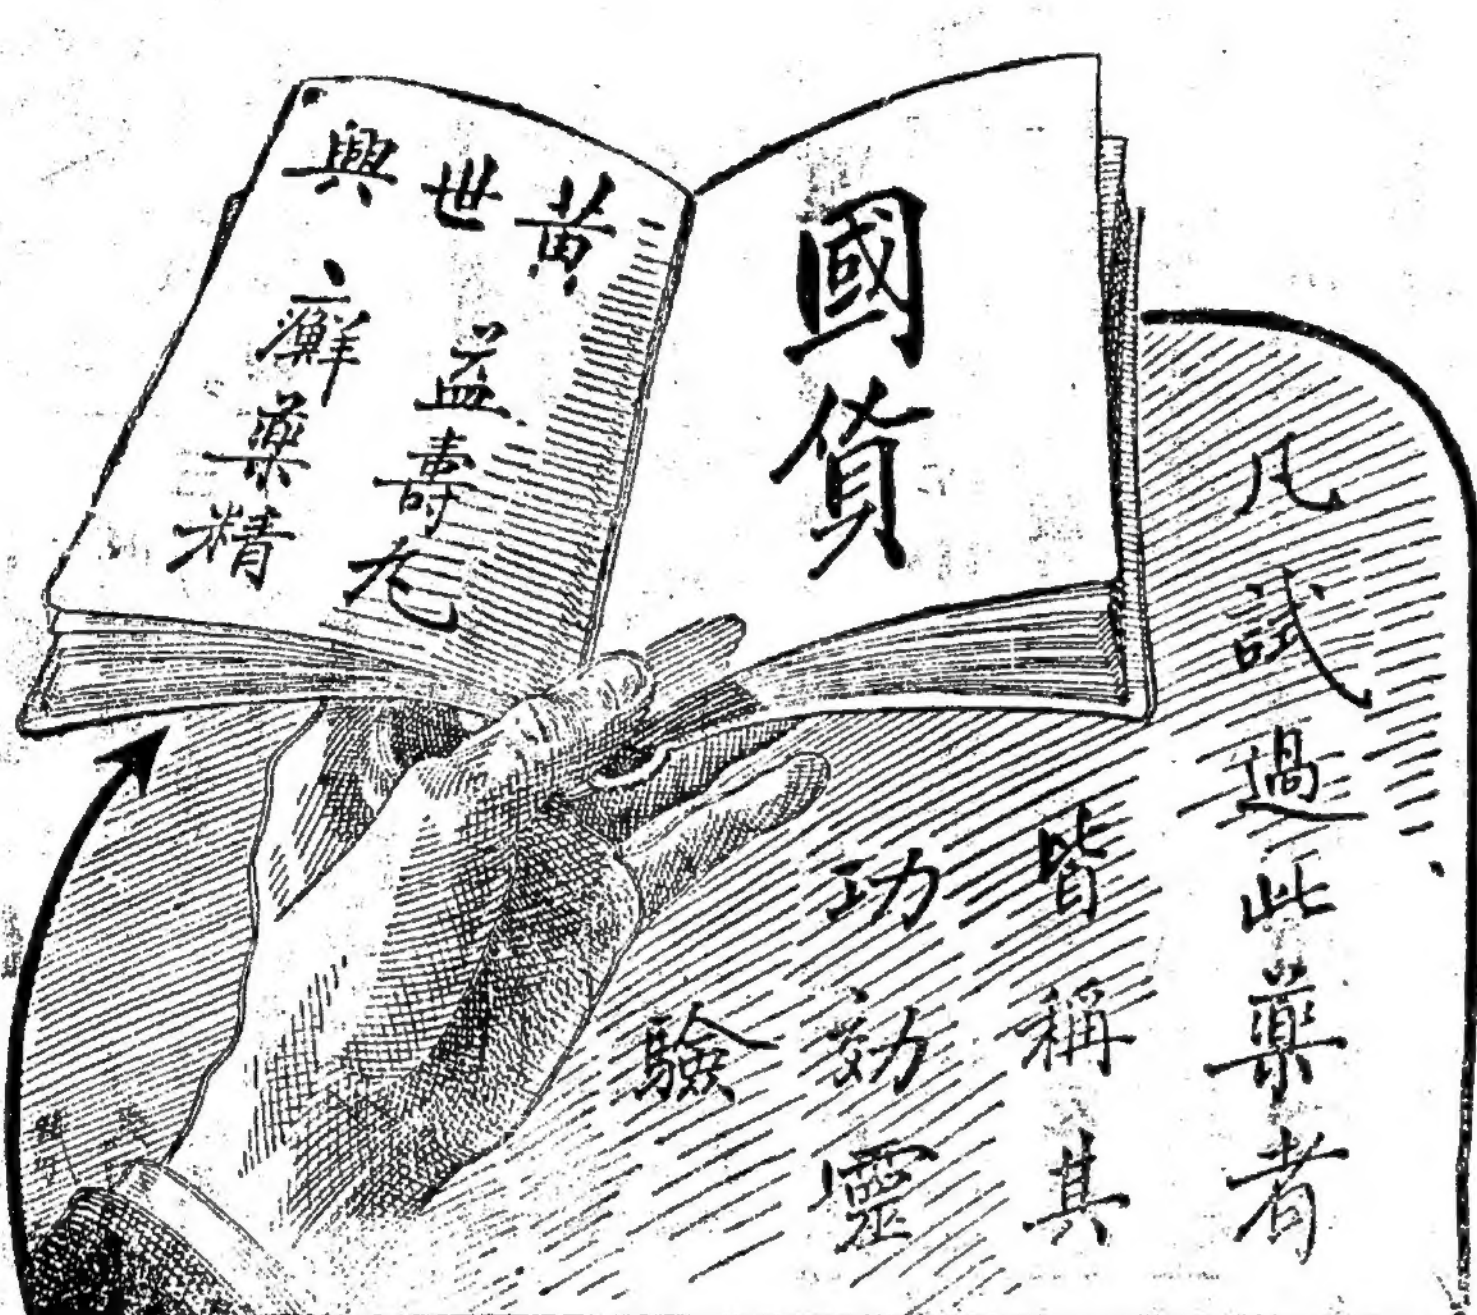 國貨
黃世興
益壽丸
癬藥精
凡試過此藥者
皆稱其
功效靈
驗